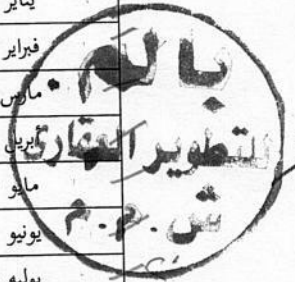 يناير
فبراير
مارس
أبريل
مايو
يونيو
يوليه
بالم
للتطوير العقارى
ش.م.م